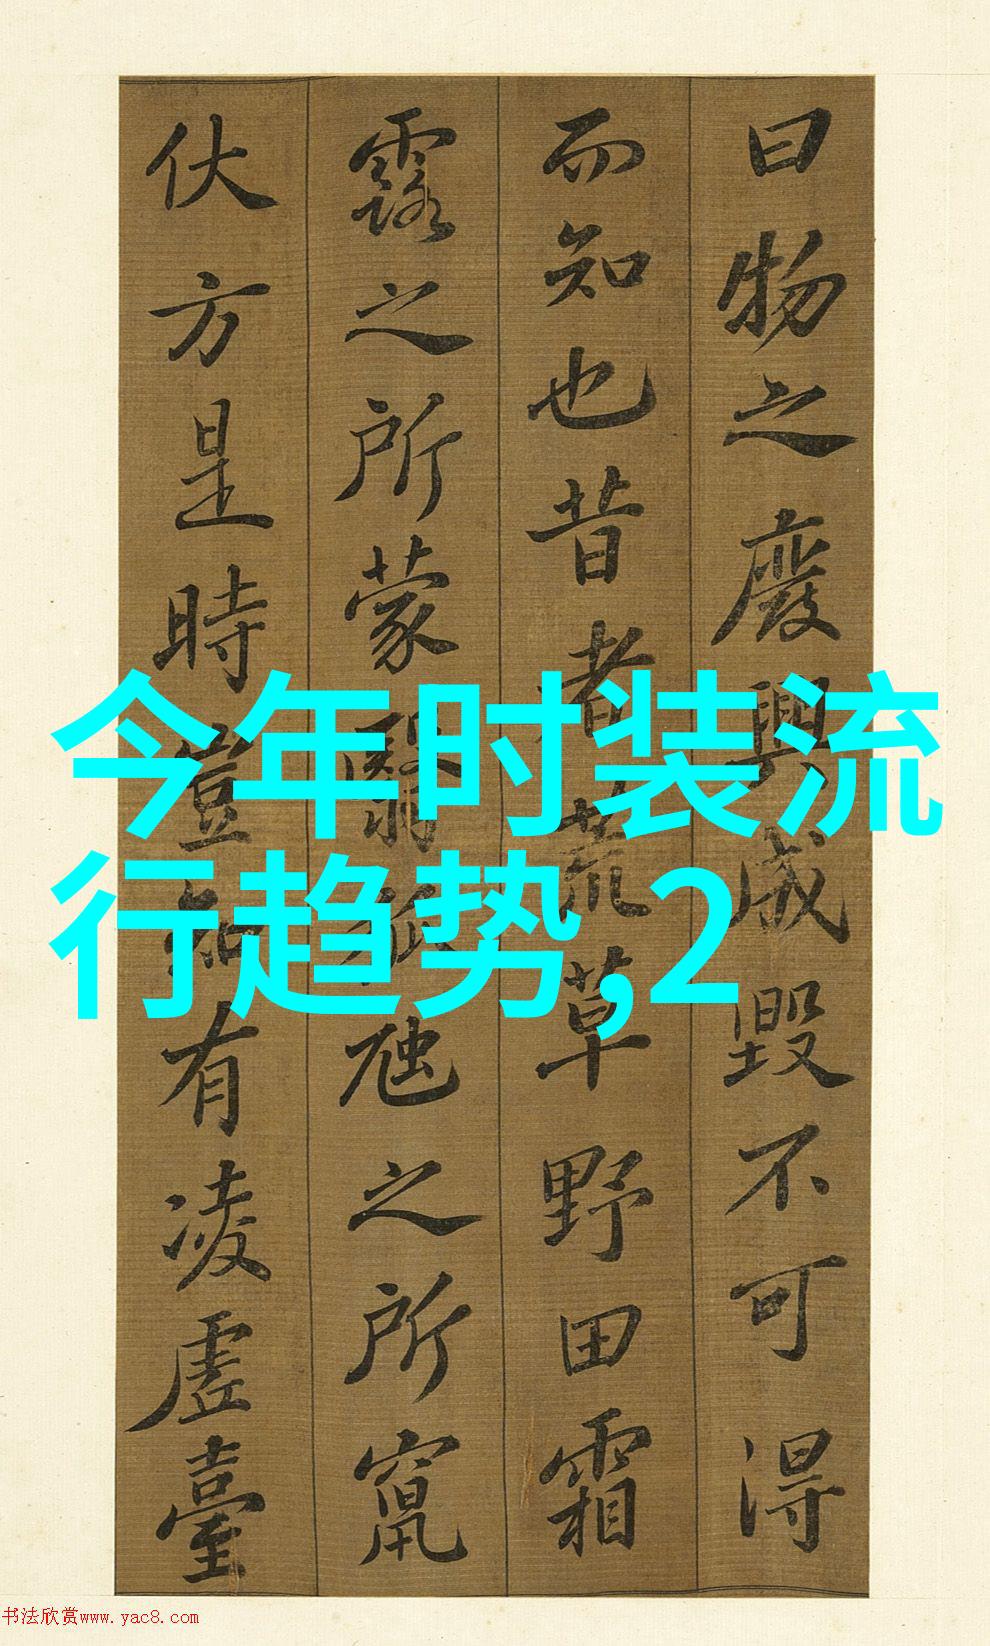 曰物之廢興成毀不可得
而知也昔者荒草野田霜
露之所蒙翳狐虺之所竄
伏方是時豈知有凌虛臺
今年时装流
行趋势,2
书法欣赏www.yac8.com